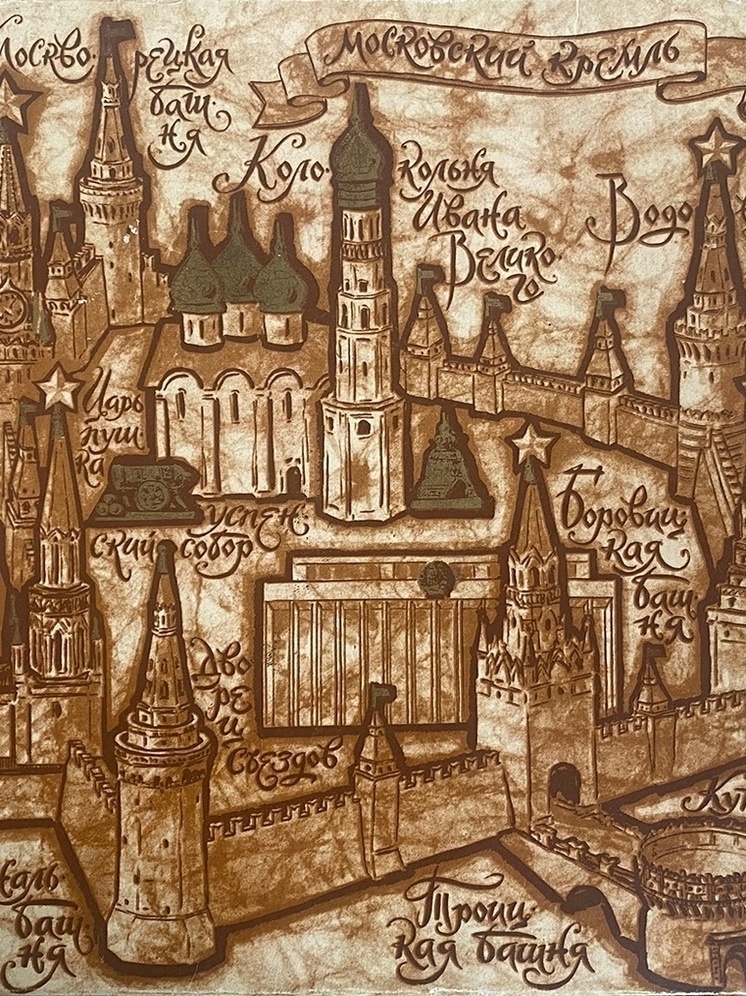 Московский кремль
Москво-рецкая
баш-
ня
Коло-кольня
Ивана
Велико-
го
Водо
Царь
пуш-
ка
Успен-
ский собор
Боровиц-
кая
баш-
ня
Дво
ре
ц
съездов
баш-
ня
Троиц-
кая башня